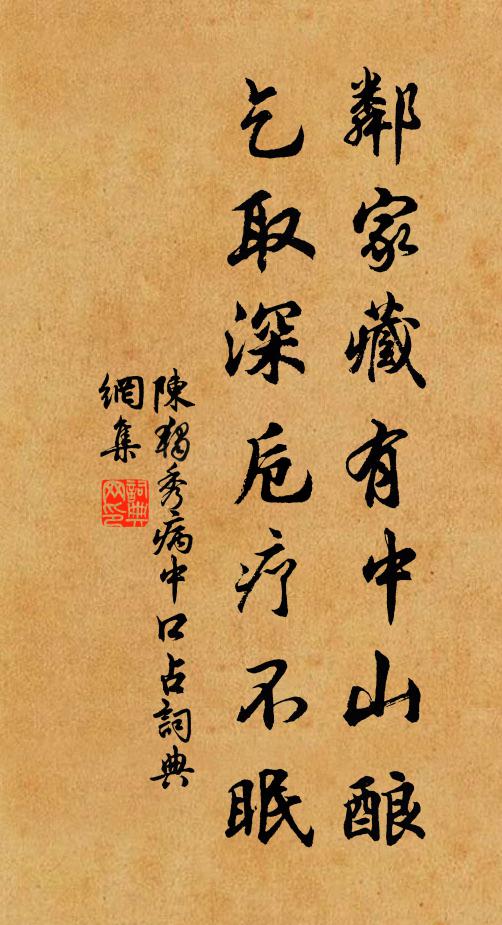 鄰家藏有中山酿
乞取深卮疗不眠
陳獨秀病中口占詞典
網集
詞典
网印